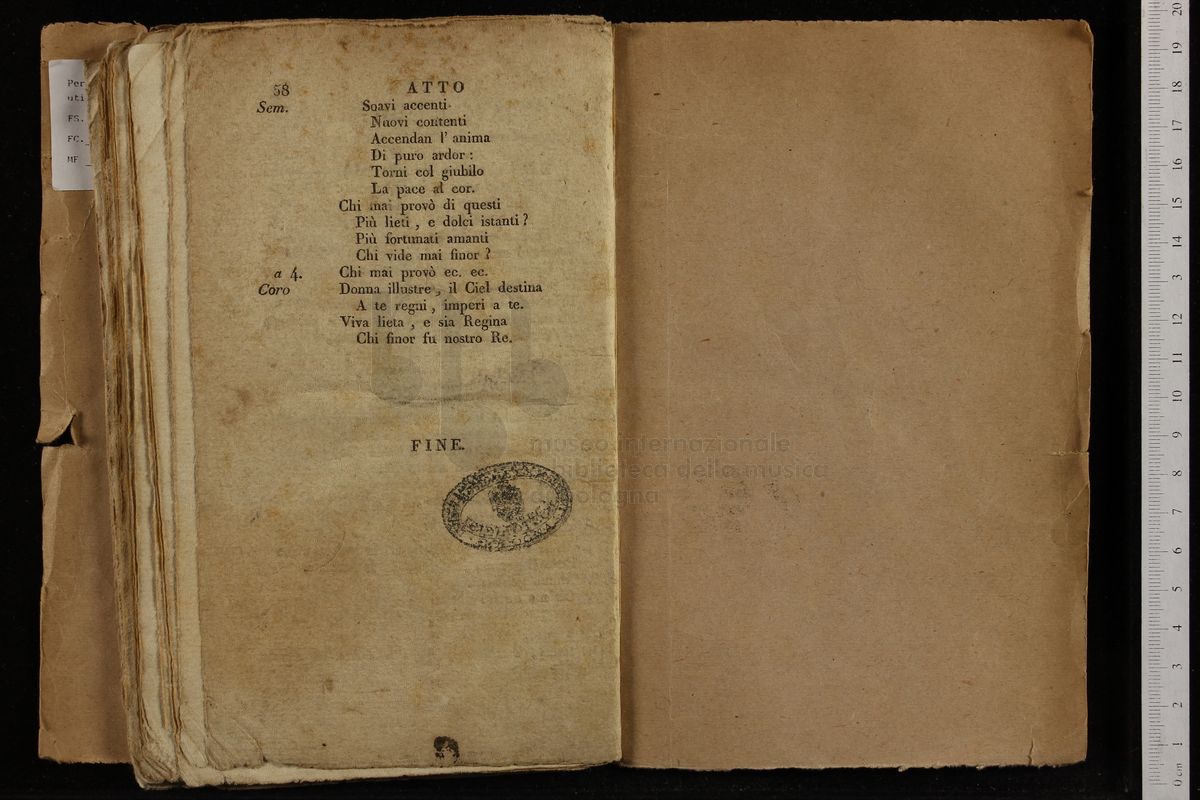 58 ATTO
Sem. Soavi accenti
Nuovi contenti
Accendan l' anima
Di puro ardor :
Torni col giubilo
La pace al cor.
Chi mai provò di questi
Più lieti , e dolci istanti ?
Più fortunati amanti
Chi vide mai finor ?
a 4. Chi mai provò ec. ec.
Coro Donna illustre , il Ciel destina
A te regni , imperi a te.
Viva lieta , e sia Regina
Chi finor fu nostro Re.
FINE.
museo internazionale
biblioteca della musica
di bologna
BIBLIOTECA
Per
uti
FS.
FC.
MF
0 cm 1 2 3 4 5 6 7 8 9 10 11 12 13 14 15 16 17 18 19 20